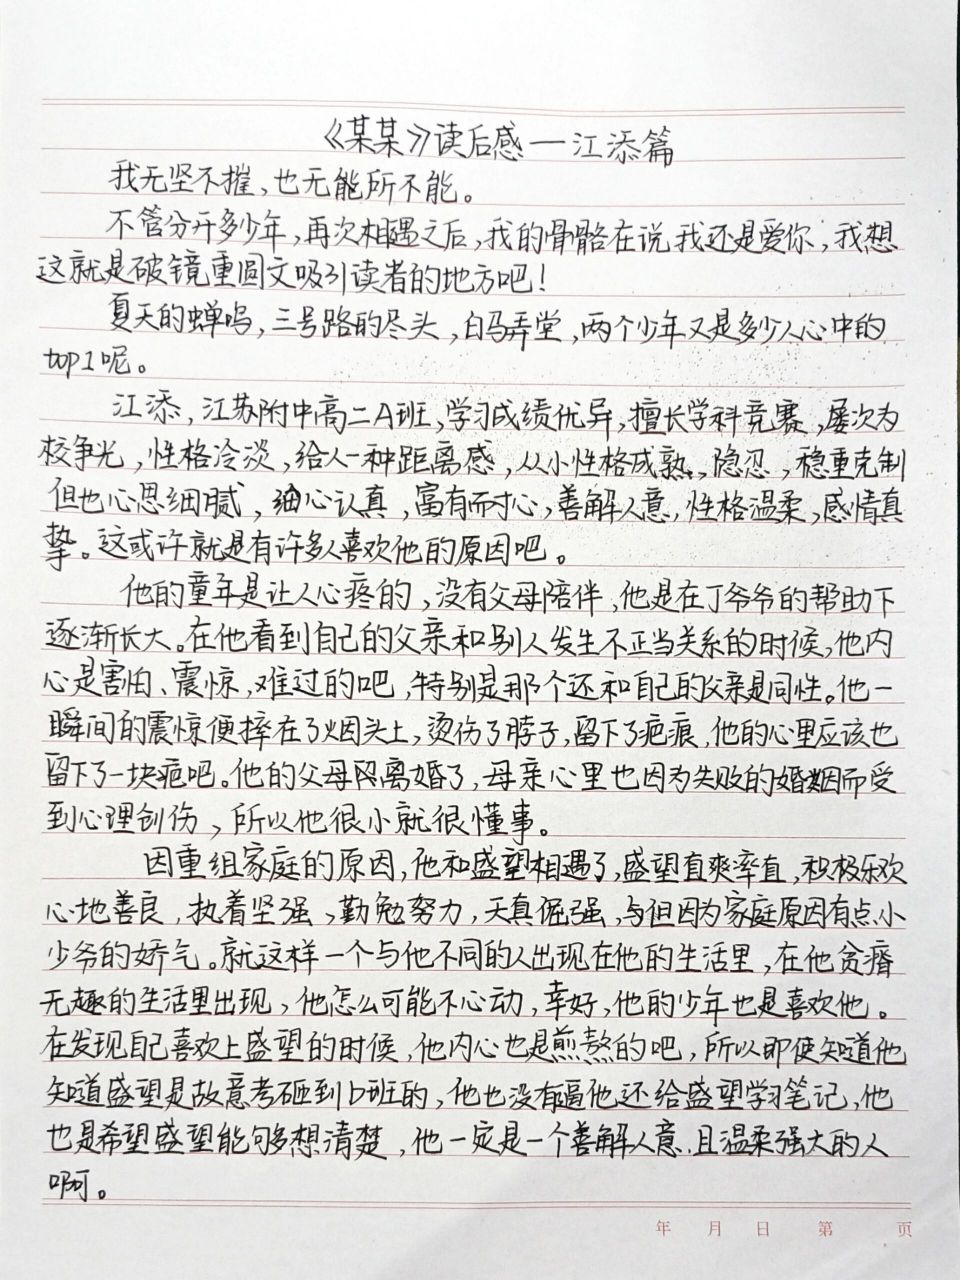 《某某》读后感—江添篇
我无坚不摧,也无能所不能。
不管分开多少年,再次相遇之后,我的骨骼在说我还是爱你,我想
这就是破镜重圆文吸引读者的地方吧!
夏天的蝉鸣,三号路的尽头,白马弄堂,两个少年又是多少人心中的
top1呢。
江添,江苏附中高二A班,学习成绩优异,擅长学科竞赛,屡次为
校争光,性格冷淡,给人一种距离感,从小性格成熟,隐忍,稳重克制
但也心思细腻,细心认真,富有耐心,善解人意,性格温柔,感情真
挚。这或许就是有许多人喜欢他的原因吧。
他的童年是让人心疼的,没有父母陪伴,他是在丁爷爷的帮助下
逐渐长大。在他看到自己的父亲和别人发生不正当关系的时候,他内
心是害怕、震惊,难过的吧,特别是那个还和自己的父亲是同性。他一
瞬间的震惊便摔在了烟头上,烫伤了脖子,留下了疤痕,他的心里应该也
留下了一块疤吧。他的父母闪离婚了,母亲心里也因为失败的婚姻而受
到心理创伤,所以他很小就很懂事。
因重组家庭的原因,他和盛望相遇了,盛望直爽率直,积极乐欢
心地善良,执着坚强,勤勉努力,天真倔强,与但因为家庭原因有点小
少爷的娇气。就这样一个与他不同的人出现在他的生活里,在他贫瘠
无趣的生活里出现,他怎么可能不心动,幸好,他的少年也是喜欢他。
在发现自己喜欢上盛望的时候,他内心也是煎熬的吧,所以即使知道他
知道盛望是故意考砸到b班的,他也没有逼他还给盛望学习笔记,他
也是希望盛望能够多想清楚,他一定是一个善解人意.且温柔强大的人
啊。
年 月 日 第 页